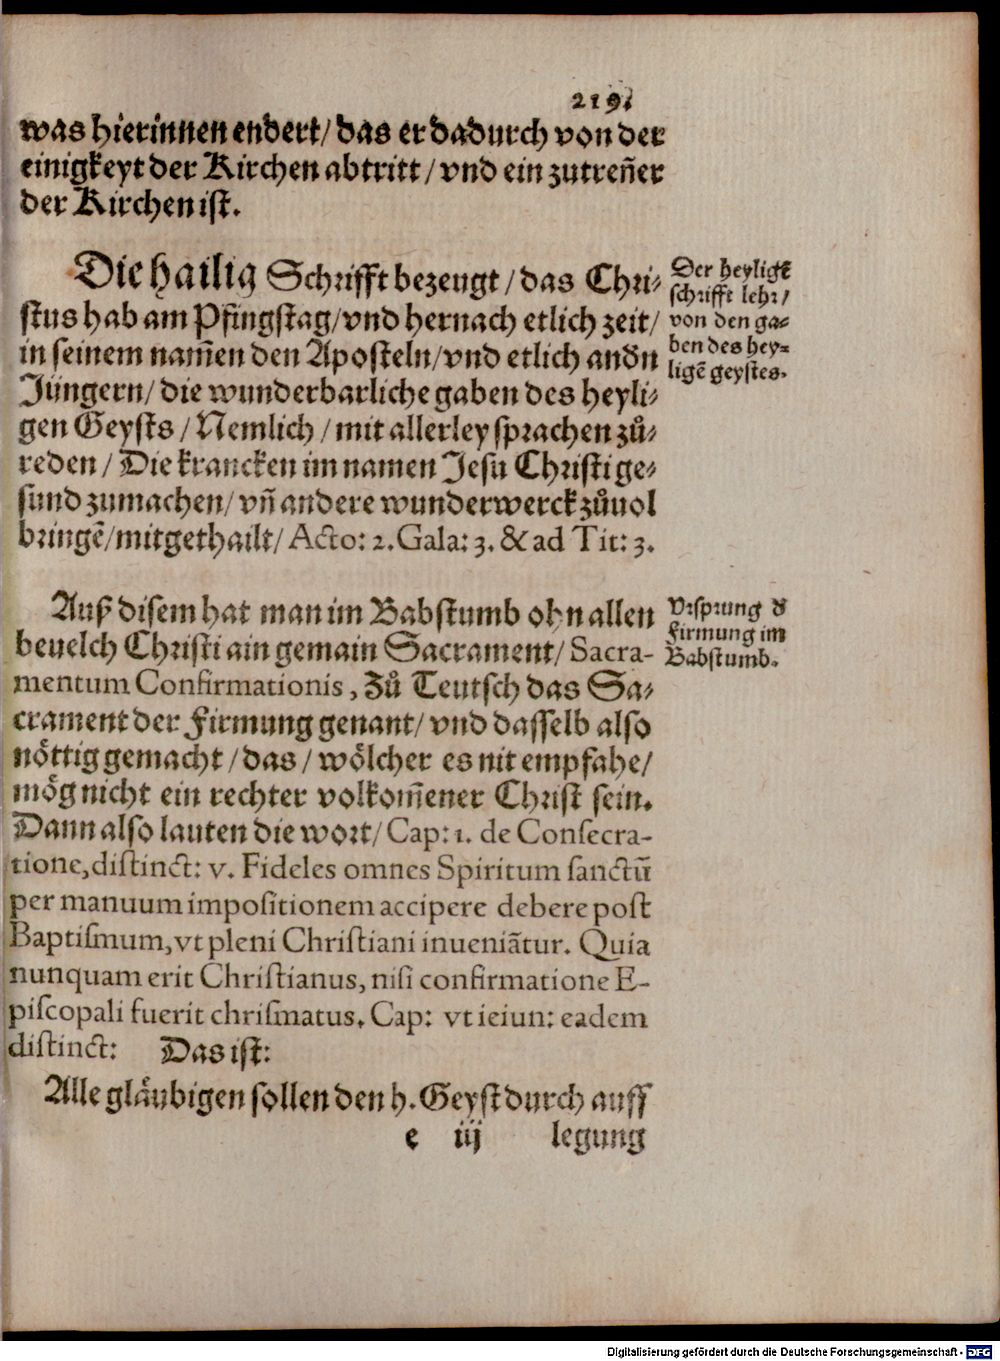 219.
was hierinnen endert/ das er dadurch von der
einigkeyt der Kirchen abtritt/ vnd ein zutreñer
der Kirchen ist.
Die hailig Schrifft bezeugt/ das Chri-
stus hab am Pfingstag/ vnd hernach etlich zeit/
in seinem nam̃en den Aposteln/ vnd etlich andn
Jüngern/ die wunderbarliche gaben des heyli-
gen Geysts/ Nemlich/ mit allerley sprachen zů-
reden/ Die krancken im namen Jesu Christi ge-
sund zumachen/ vñ andere wunderwerck zůuol
bringẽ/ mitgethailt/ Acto: 2. Gala: 3. & ad Tit: 3.
Der heyligẽ
schrifft lehr/
von den ga-
ben des hey-
ligẽ geystes.
Auß disem hat man im Babstumb ohn allen
beuelch Christi ain gemain Sacrament/ Sacra-
mentum Confirmationis, Zů Teutsch das Sa-
crament der Firmung genant/ vnd dasselb also
nöttig gemacht/ das/ wölcher es nit empfahe/
mög nicht ein rechter volkom̃ener Christ sein.
Dann also lauten die wort/ Cap: 1. de Consecra-
tione, distinct: v. Fideles omnes Spiritum sanctũ
per manuum impositionem accipere debere post
Baptismum, vt pleni Christiani inueniãtur. Quia
nunquam erit Christianus, nisi confirmatione E-
piscopali fuerit chrismatus. Cap: vt ieiun: eadem
distinct: Das ist:
Vrsprung d
Firmung im
Babstumb.
Alle gläubigen sollen den h. Geyst durch auff
e iij legung
Digitalisierung gefördert durch die Deutsche Forschungsgemeinschaft - DFG